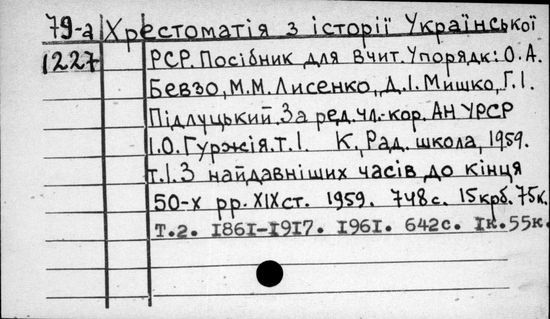 79-а Хрестоматія з історії Української
1227 РСР. Посібник для вчит. Упорядк: О.А.
Бевзо, М.М. Лисенко, Д.І. Мишко, Г.І.
Підлуцький. За ред. чл.-кор. АН УРСР
І.О. Гуржія. т.І. К., Рад. школа, 1959.
т.І. З найдавніших часів до кінця
50-х рр. XIX ст. 1959. 748с. 15крб. 75к.
Т.2. I86I-I9I7. I96I. 642с. Iк.55к.